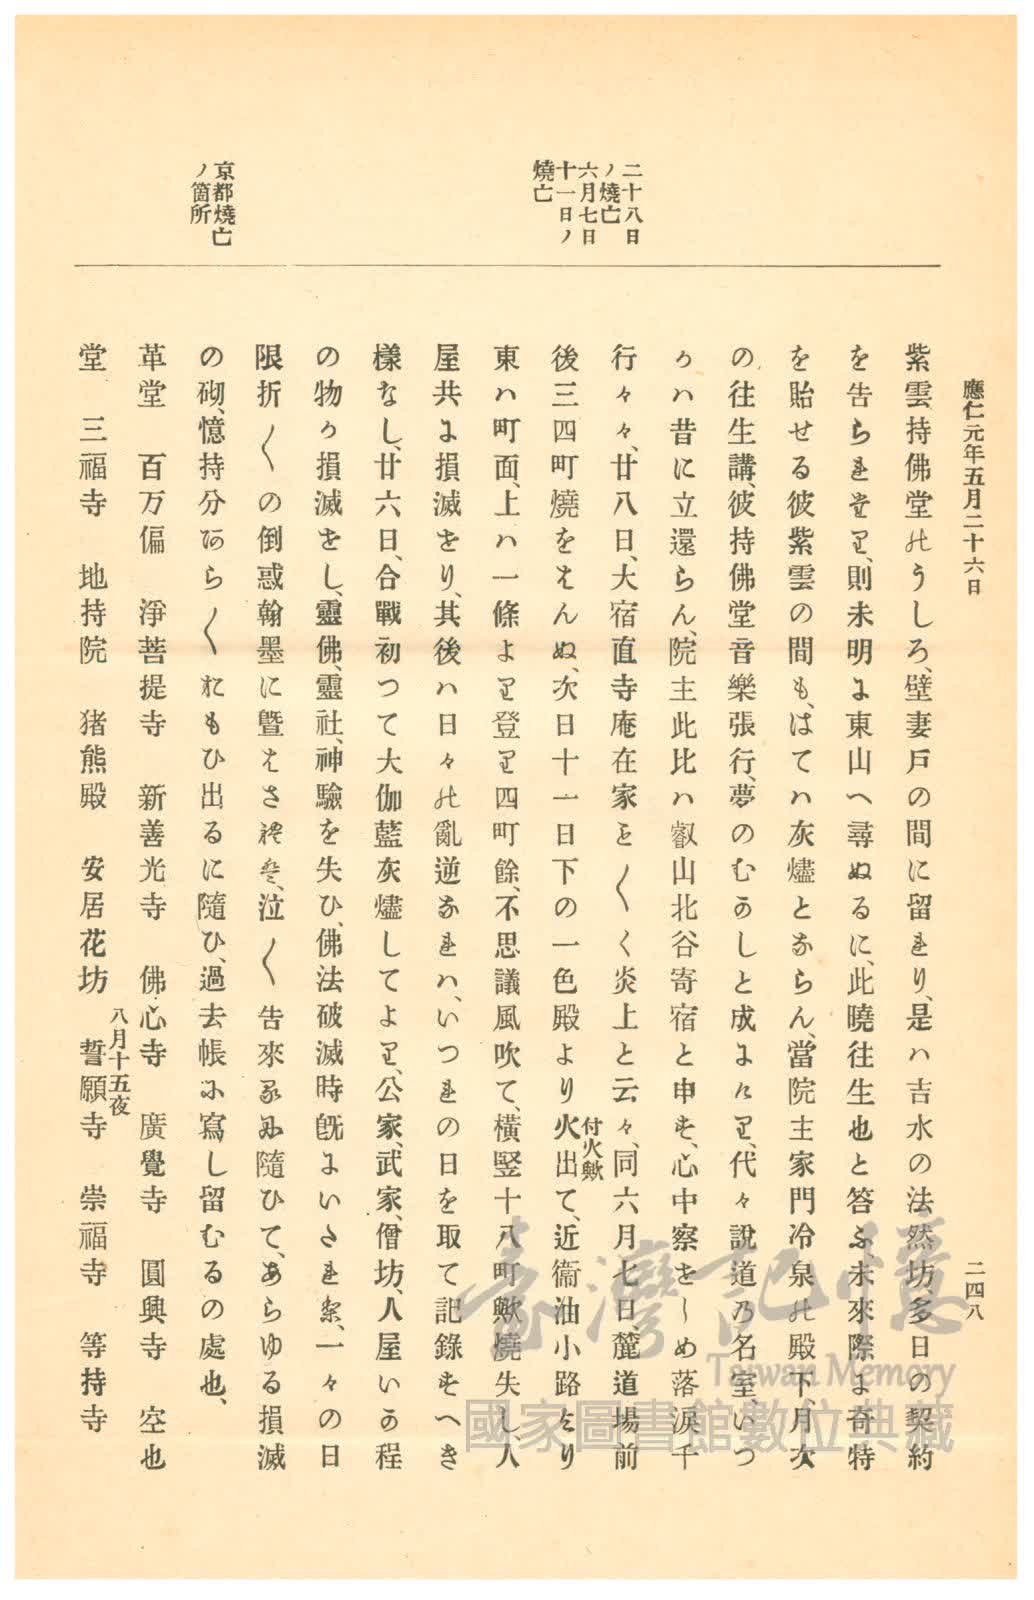 應仁元年五月二十六日
二四八
二十八日
ノ燒亡
六月七日
十一日ノ
燒亡
京都燒亡
ノ箇所
紫雲、持佛堂のうしろ、壁妻戶の間に留れり、是ハ吉水の法然坊、多日の契約
を告られをり、則未明に東山へ尋ぬるに、此曉往生也と答ふ、末來際よ奇特
を貽せる彼紫雲の間も、はてハ灰燼とならん、當院主家門冷泉の殿下、月次
の往生講、彼持佛堂音樂張行、夢のむかしと成にけり、代々說道乃名室、いつ
かハ昔に立還らん、院主此比ハ叡山北谷寄宿と申を、心中察をしめ落淚千
行々々、廿八日、大宿直寺庵在家をく〳〵炎上と云々、同六月七日、麓道場前
後三四町燒をはんぬ、次日十一日下の一色殿より火出て、近衞油小路より
付火歟
東ハ町面、上ハ一條より登り四町餘、不思議風吹て、橫竪十八町歟燒失し、人
屋共に損滅をり、其後ハ日々の亂逆なれハ、いつれの日を取て記錄すへき
樣なし、廿六日、合戰初つて大伽藍灰燼してより、公家、武家、僧坊、人屋いか程
の物か損滅をし、靈佛、靈社、神驗を失ひ、佛法破滅時既にいたれ、一々の日
限折〳〵の倒惑翰墨に曁はさ、泣〳〵告來るに隨ひて、あらゆる損滅
の砌、憶持分あら〳〵おもひ出るに隨ひ、過去帳に寫し留むるの處也、
革堂 百万偏 淨菩提寺 新善光寺 佛心寺 廣覺寺 圓興寺 空也
堂 三福寺 地持院 猪熊殿 安居花坊 誓願寺 崇福寺 等持寺
八月十五夜
臺灣記憶
Taiwan Memory
國家圖書館數位典藏